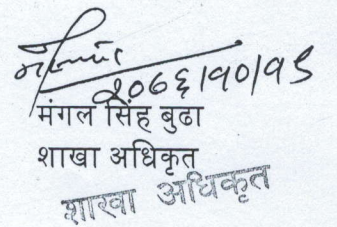 २०७६।१०।१९
मंगल सिंह बुढा
शाखा अधिकृत
शाखा अधिकृत